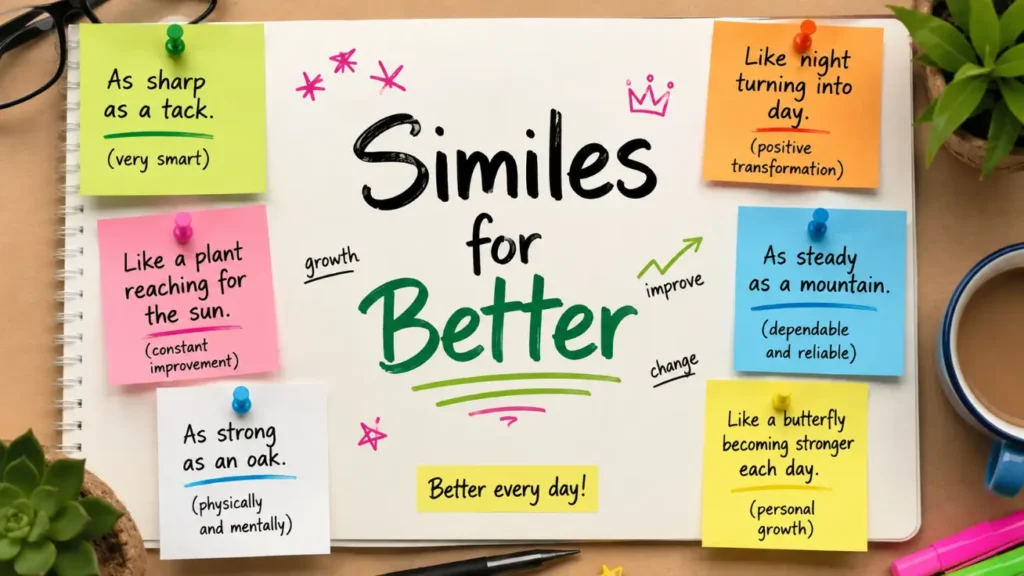 As sharp
as a tack.
(very smart)
Like a plant
reaching for
the sun.
(constant
improvement)
As strong
as an oak.
(physically
and mentally)
Similes
for
Better
growth
improve
change
Better every day!
Like night
turning into
day.
(positive
transformation)
As steady
as a mountain.
(dependable
and reliable)
Like a butterfly
becoming stronger
each day.
(personal
growth)